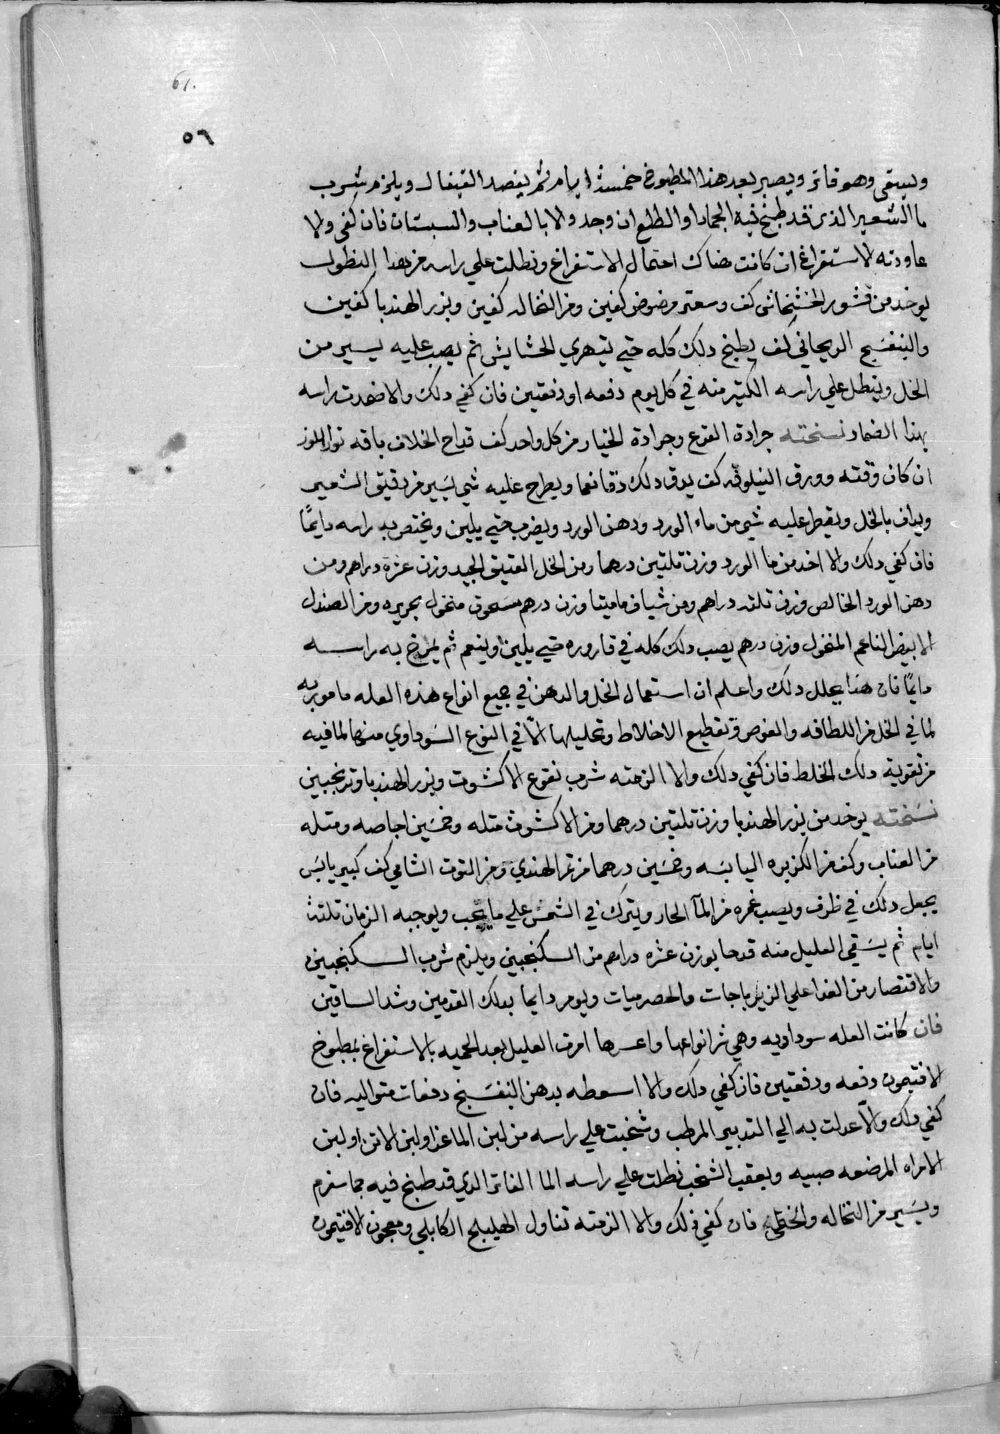 61.
٥٦
ويسقى وهو فاتر ويصبر بعد هذا المطبوخ خمسة ايام ثم يفصد القيفال ويلزم شرب
ما الشعير الذي قد طبخ فيه الجمار او الطلع ان وجد والا بالعناب والسبستان فان كفى والا
عاودته لاستفراغ ان كانت هناك احتمال الاستفراغ ونطلت علي راسه من هذا النطول
يوخذ من قشور الخشخاش كف وسعتر مرضوض كفين ومن النخاله كفين وبزر الهندبا كفين
والبنفسج الريحاني كف يطبخ دلك كله حتي تتهري الحشايش ثم يصب عليه يسير من
الخل وينطل علي راسه الكثير منه في كل يوم دفعه او دفعتين فان كفي دلك والا ضمدت راسه
بهذا الضماد نسخته جرادة القرع وجرادة الخيار من كل واحد كف قداح الخلاف باقه نوار اللوز
ان كان وقته وورق النيلوفر كف يدق دلك دقا نعما ويطرح عليه شي يسير من دقيق الشعير
ويداف بالخل ويقطر عليه شي من ماء الورد ودهن الورد ويضرب حتي يلين ويختص به راسه دايمًا
فان كفي دلك والا اخد من ما الورد وزن تلتين درهما ومن الخل العتيق الجيد وزن عشرة دراهم ومن
دهن الورد الخالص وزن تلته دراهم ومن شياف ماميثا وزن درهم مسحوق منخول بحريره ومن الصندل
الابيض الناعم المنخول وزن درهم يصب دلك كله في قاروره حتي يلين وينعم ثم يمرخ به راسه
دايمًا فان هذا يحلل دلك واعلم ان استعمال الخل والدهن في جميع انواع هذه العله مامور به
لما في الخل من اللطافه والغوص وتقطيع الاخلاط وتحليلها الّا في النوع السوداوي منها لما فيه
من تقوية دلك الخلط فان كفي دلك والا الزمته شرب نقوع الاكشوت وبزر الهندبا وترنجبين
نسخته يوخد من بزر الهندبا وزن تلتين درهما ومن الاكشوث مثله وخمسين اجاصه ومثله
من العناب وكف من الكزبره اليابسه وخمسين درهما من تمر الهندي ومن التوت الشامي كف كبير يابس
يجعل دلك في ظرف ويصب غمره من المآ الحار ويترك في الشمس علي ما يجب ويوجبه الزمان تلثة
ايام ثم يسقي العليل منه قدحا بوزن عشره دراهم من السكنجبين ويلزم شرب السكنجبين
والاقتصار من الغدا علي الزيرباجات والحصرميات ويومر دايما بدلك القدمين وشد الساقين
فان كانت العله سوداويه وهي شر انواعها واعسرها امرت العليل بعد الحميه بالاستفراغ بمطبوخ
الافتيمون دفعه ودفعتين فان كفي دلك والا اسعطه بدهن البنفسج دفعات متواليه فان
كفي دلك والّا عدلت به الي التدبير المرطب وشخبت علي راسه من لبن الماعز او لبن الاتن او لبن
الامراه المرضعه صبيه وبعقب الشخب نطلت علي راسه الما الفاتر الذي قد طبخ فيه جماسفرم
ويسير من النخاله والخطمي فان كفي ذلك والا الزمته تناول الهليلج الكابلي ومعجون الافتيمون